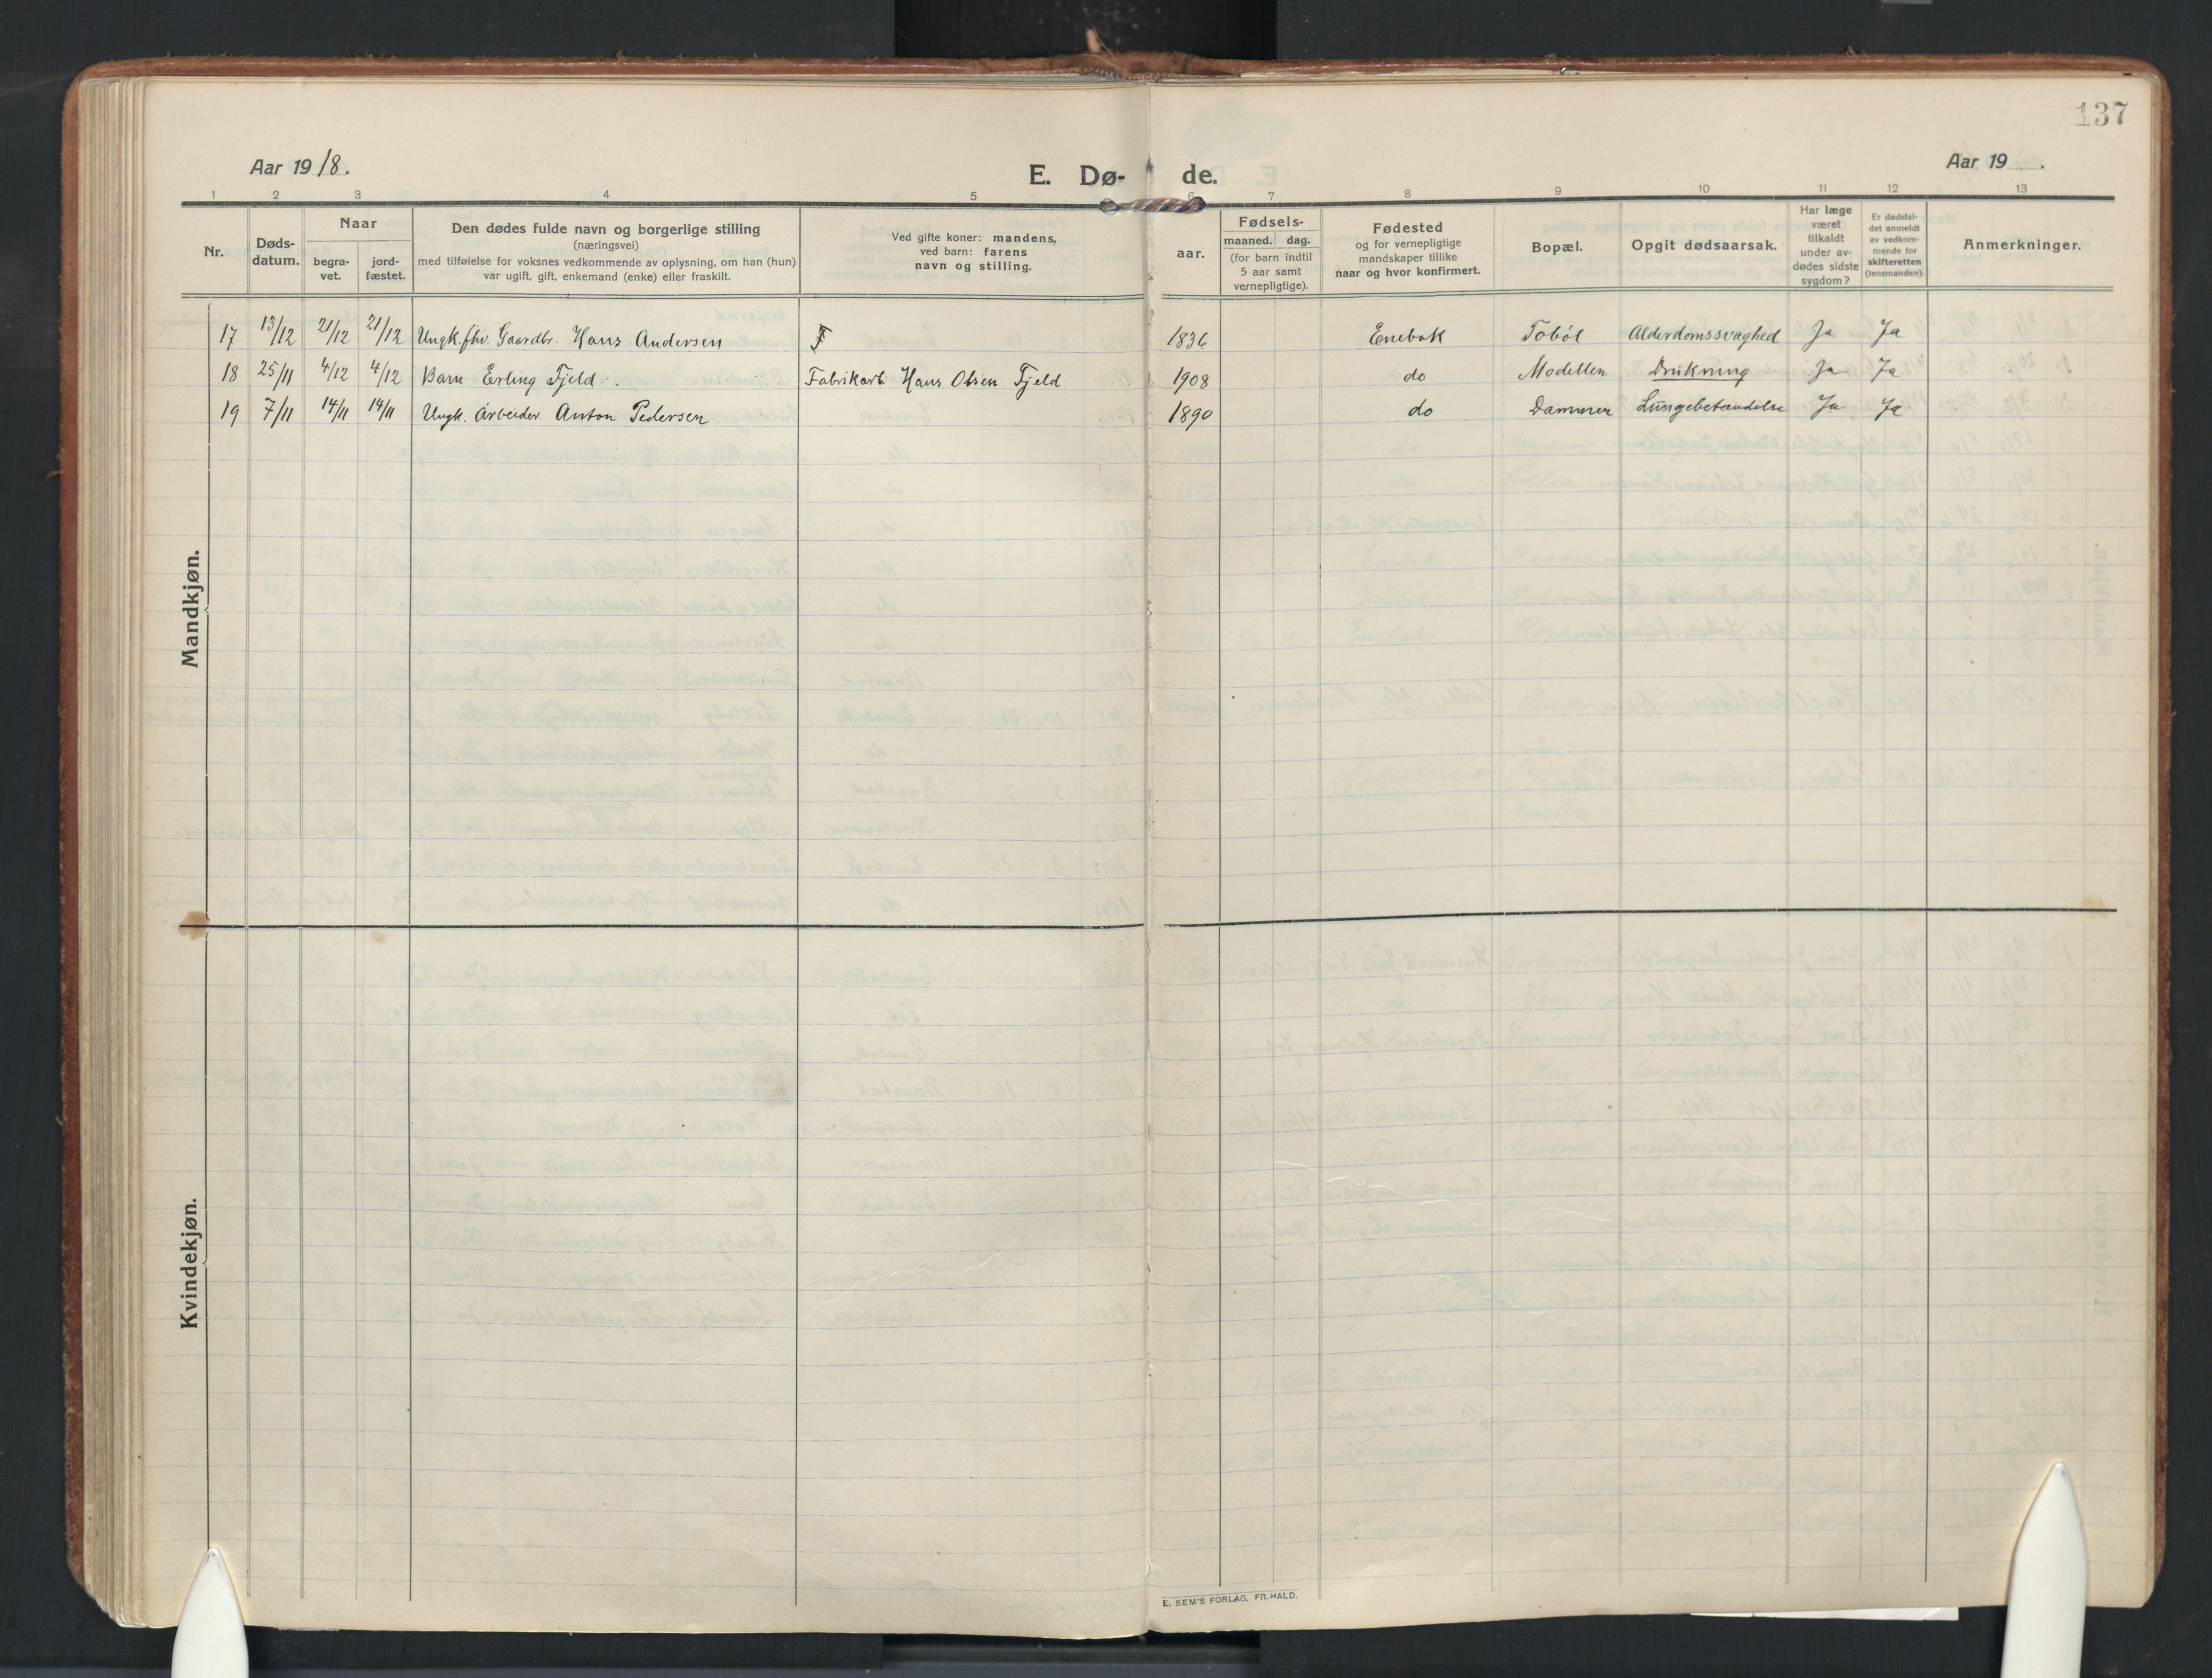 137
Aar 1918.
E. Dø- de.
Aar 19 .
1 2 3 4 5 6 7 8 9 10 11 12 13
Nr.
Døds-
datum.
Naar
begra-
vet.
jord-
fæstet.
Den dødes fulde navn og borgerlige stilling
(næringsvei)
med tilføielse for voksnes vedkommende av oplysning, om han (hun)
var ugift, gift, enkemand (enke) eller fraskilt.
Ved gifte koner: mandens,
ved barn: farens
navn og stilling.
aar.
Fødsels-
maaned. dag.
(for barn indtil
5 aar samt
vernepligtige).
Fødested
og for vernepligtige
mandskaper tillike
naar og hvor konfirmert.
Bopæl.
Opgit dødsaarsak.
Har læge
været
tilkaldt
under av-
dødes sidste
sygdom?
Er dødsfal-
det anmeldt
av vedkom-
mende for
skifteretten
(lensmanden).
Anmerkninger.
Mandkjøn.
17 13/12 21/12 21/12 Ungk. fhv. Gaardbr. Hans Andersen F 1836 Enebak Tobøl Alderdomssvaghed Ja Ja
18 25/11 4/12 4/12 Barn Erling Fjeld. Fabrikarb Hans Olsen Fjeld 1908 do Modellen Drukning Ja Ja
19 7/11 14/11 14/11 Ungk. Arbeider Anton Pedersen 1890 do Dammen Lungebetændelse Ja Ja
Kvindekjøn.
E. SEM'S FORLAG, FR.HALD.